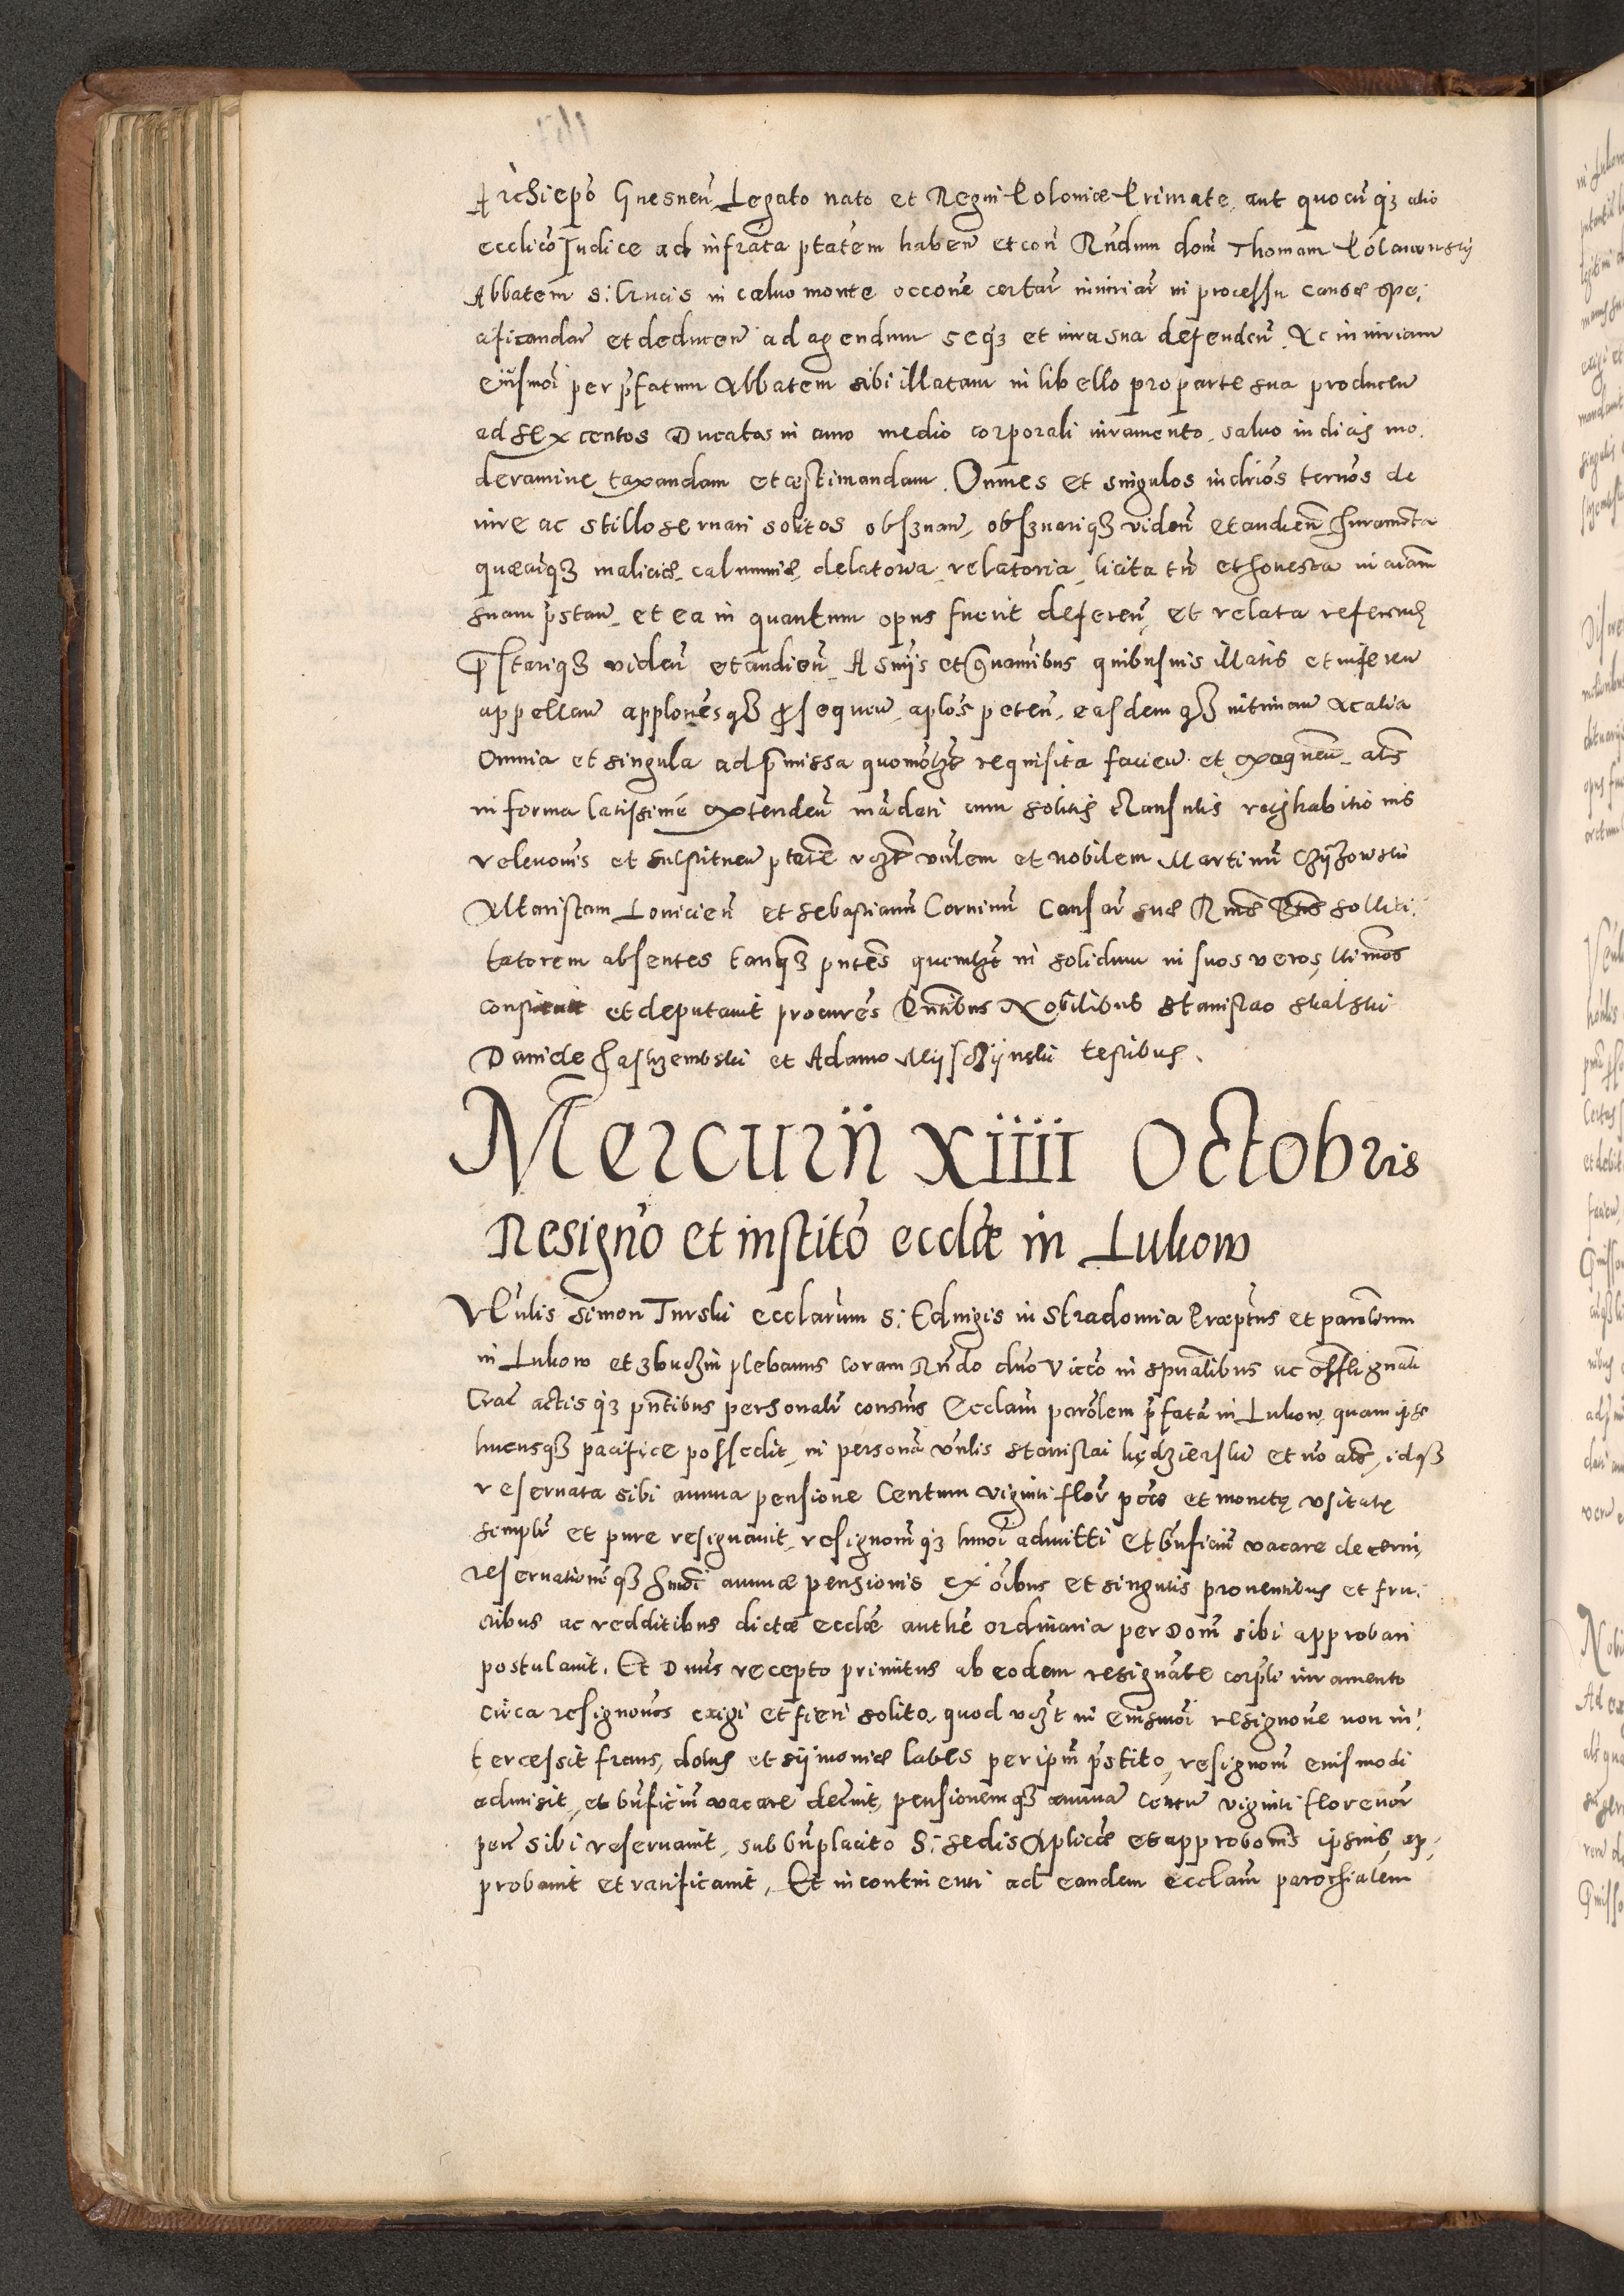 Archiepo Gnesnen Legato nato et Regni Poloniæ Primate, aut quocunq3 alio
ecclico Iudice ad infrata ptatem haben et con Rndum dom Thomam Polanowskÿ
Abbatem S: Crucis in caluo monte occone certar iniuriar in processu causæ spe,
cificandar et deducen ad agendum seq3 et iura sua defenden. Ac iniuriam
eiusmoi per pfatum Abbatem sibi illatam in libello pro parte sua producen
ad sex centos Ducatos in auro medio corporali iuramento, saluo iudicis mo,
deramine taxandam et æstimandam. Omnes et singulos iudrios termos de
iure ac stillo seruari solitos obseruan, obseruariq3 viden et audien Iuramta
quæcunq3 maliciæ, calumniæ, delatoria, relatoria, licita tn et honesta in aiam
suam pstan, et ea in quantum opus fuerit deferen, et relata referend
Pstariq3 viden et audien A sniis et grauaminibus quibusuis illatis et inferen
appellan applonesq3 prosequen, aplos peten, easdemq3 intiman Ac alia
Omnia et singula ad pmissa quomolzt requisita facien et exequen, als
in forma latissime extenden mandati cum solitis clausulis ratihabitionis
releuonis et substituen ptatem vczt vnlem et nobilem Martinu Czÿzowski
Altaristam Louicien et Sebastianum Coruinu Causar suæ Rmæ Ptis sollici,
tatorem absentes tanq3 pntes quemlzt in solidum in suos veros, ltimos
constituit et deputauit procures Pntibus Nobilibus Stanislao Skalski
Dauide Jastrzembski et Adamo Mÿschÿnski testibus.
Mercurii XIIII Octobris
Resigno et instito eccliæ in Lukow
Vnlis Simon Turski ecclarum S: Eduigis in Stradomia Præptus et parolium
in Lukow et Zbuczin plebanus coram Rndo duo Vicco in spualibus ac offli gnali
Crac actisq3 pntibus personalr constus Ecclam parolem pfata in Lukow, quam ipse
hucusq3 pacifice possedit, in persona vnlis Stanislai kędzierski et no als, idq3
reseruata sibi annua pensione Centum viginti flor pec et monetę vsitatę
simplr et pure resignauit, resignonemq3 hmoi admitti Et bnficiu vacare decerni,
reseruationeq3 hmoi annuæ pensionis ex oibus et singulis prouentibus et fru,
ctibus ac redditibus dictæ eccliæ authe ordinaria per Dom sibi approbari
postulauit. Et Dnus recepto primitus ab eodem resignate corpli iuramento
circa resignones exigi et fieri solito, quod vczt in eiusmoi resignone non in,
tercessit fraus, dolus et sÿmoniæ labes per ipm pstito, resignonem eiusmodi
admisit, et bnficiu vacare decreuit, pensionemq3 annua centu viginti florenor
pen sibi reseruauit, sub bnplacito S: Sedis Aplicæ et approbonis ipsius, ap,
probauit et ratificauit, Et incontinenti ad eandem ecclam parochialem